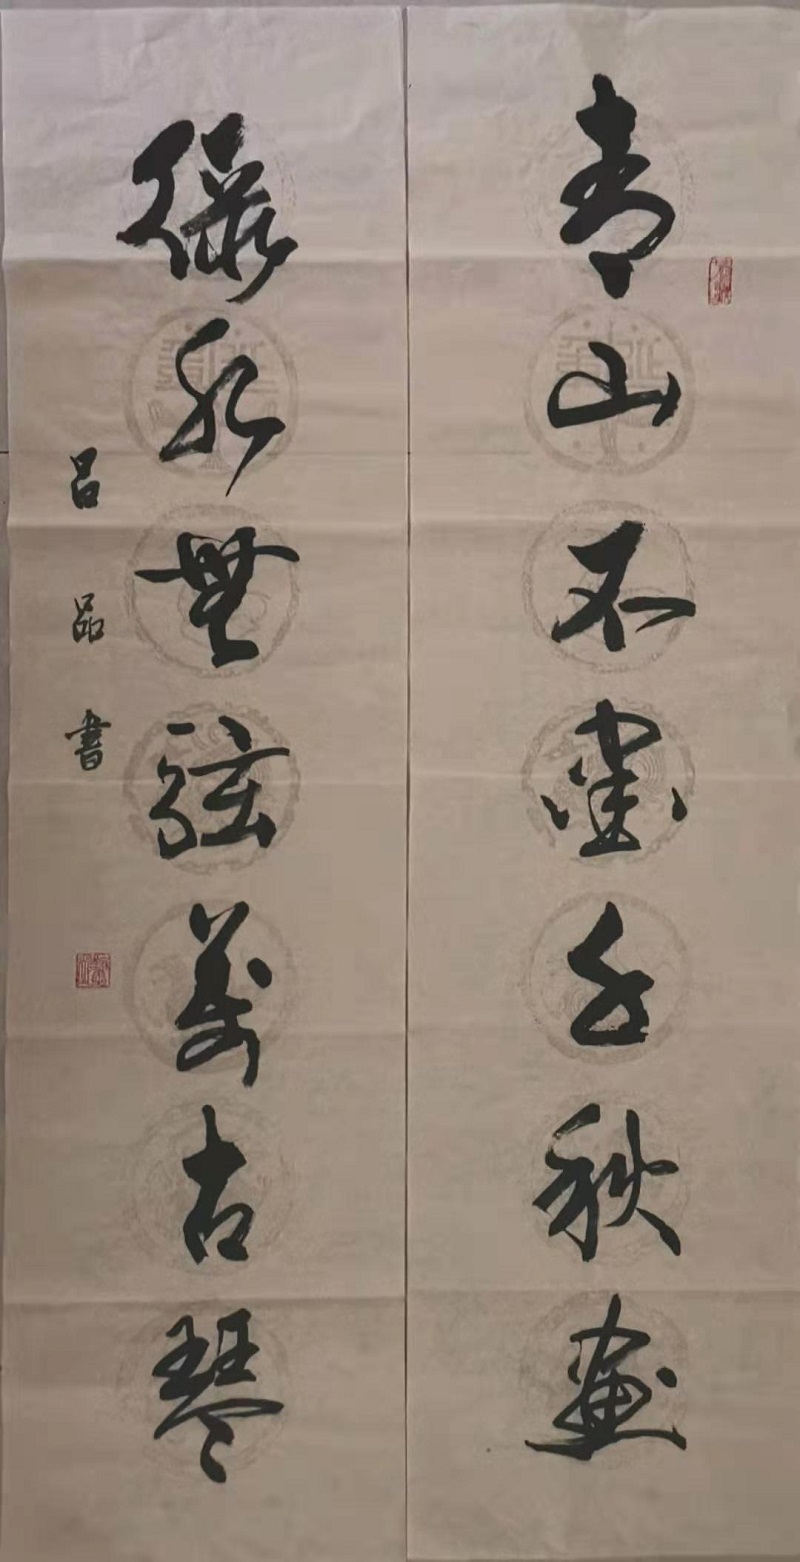 青山不墨千秋畫
綠水無弦萬古琴
吕品書